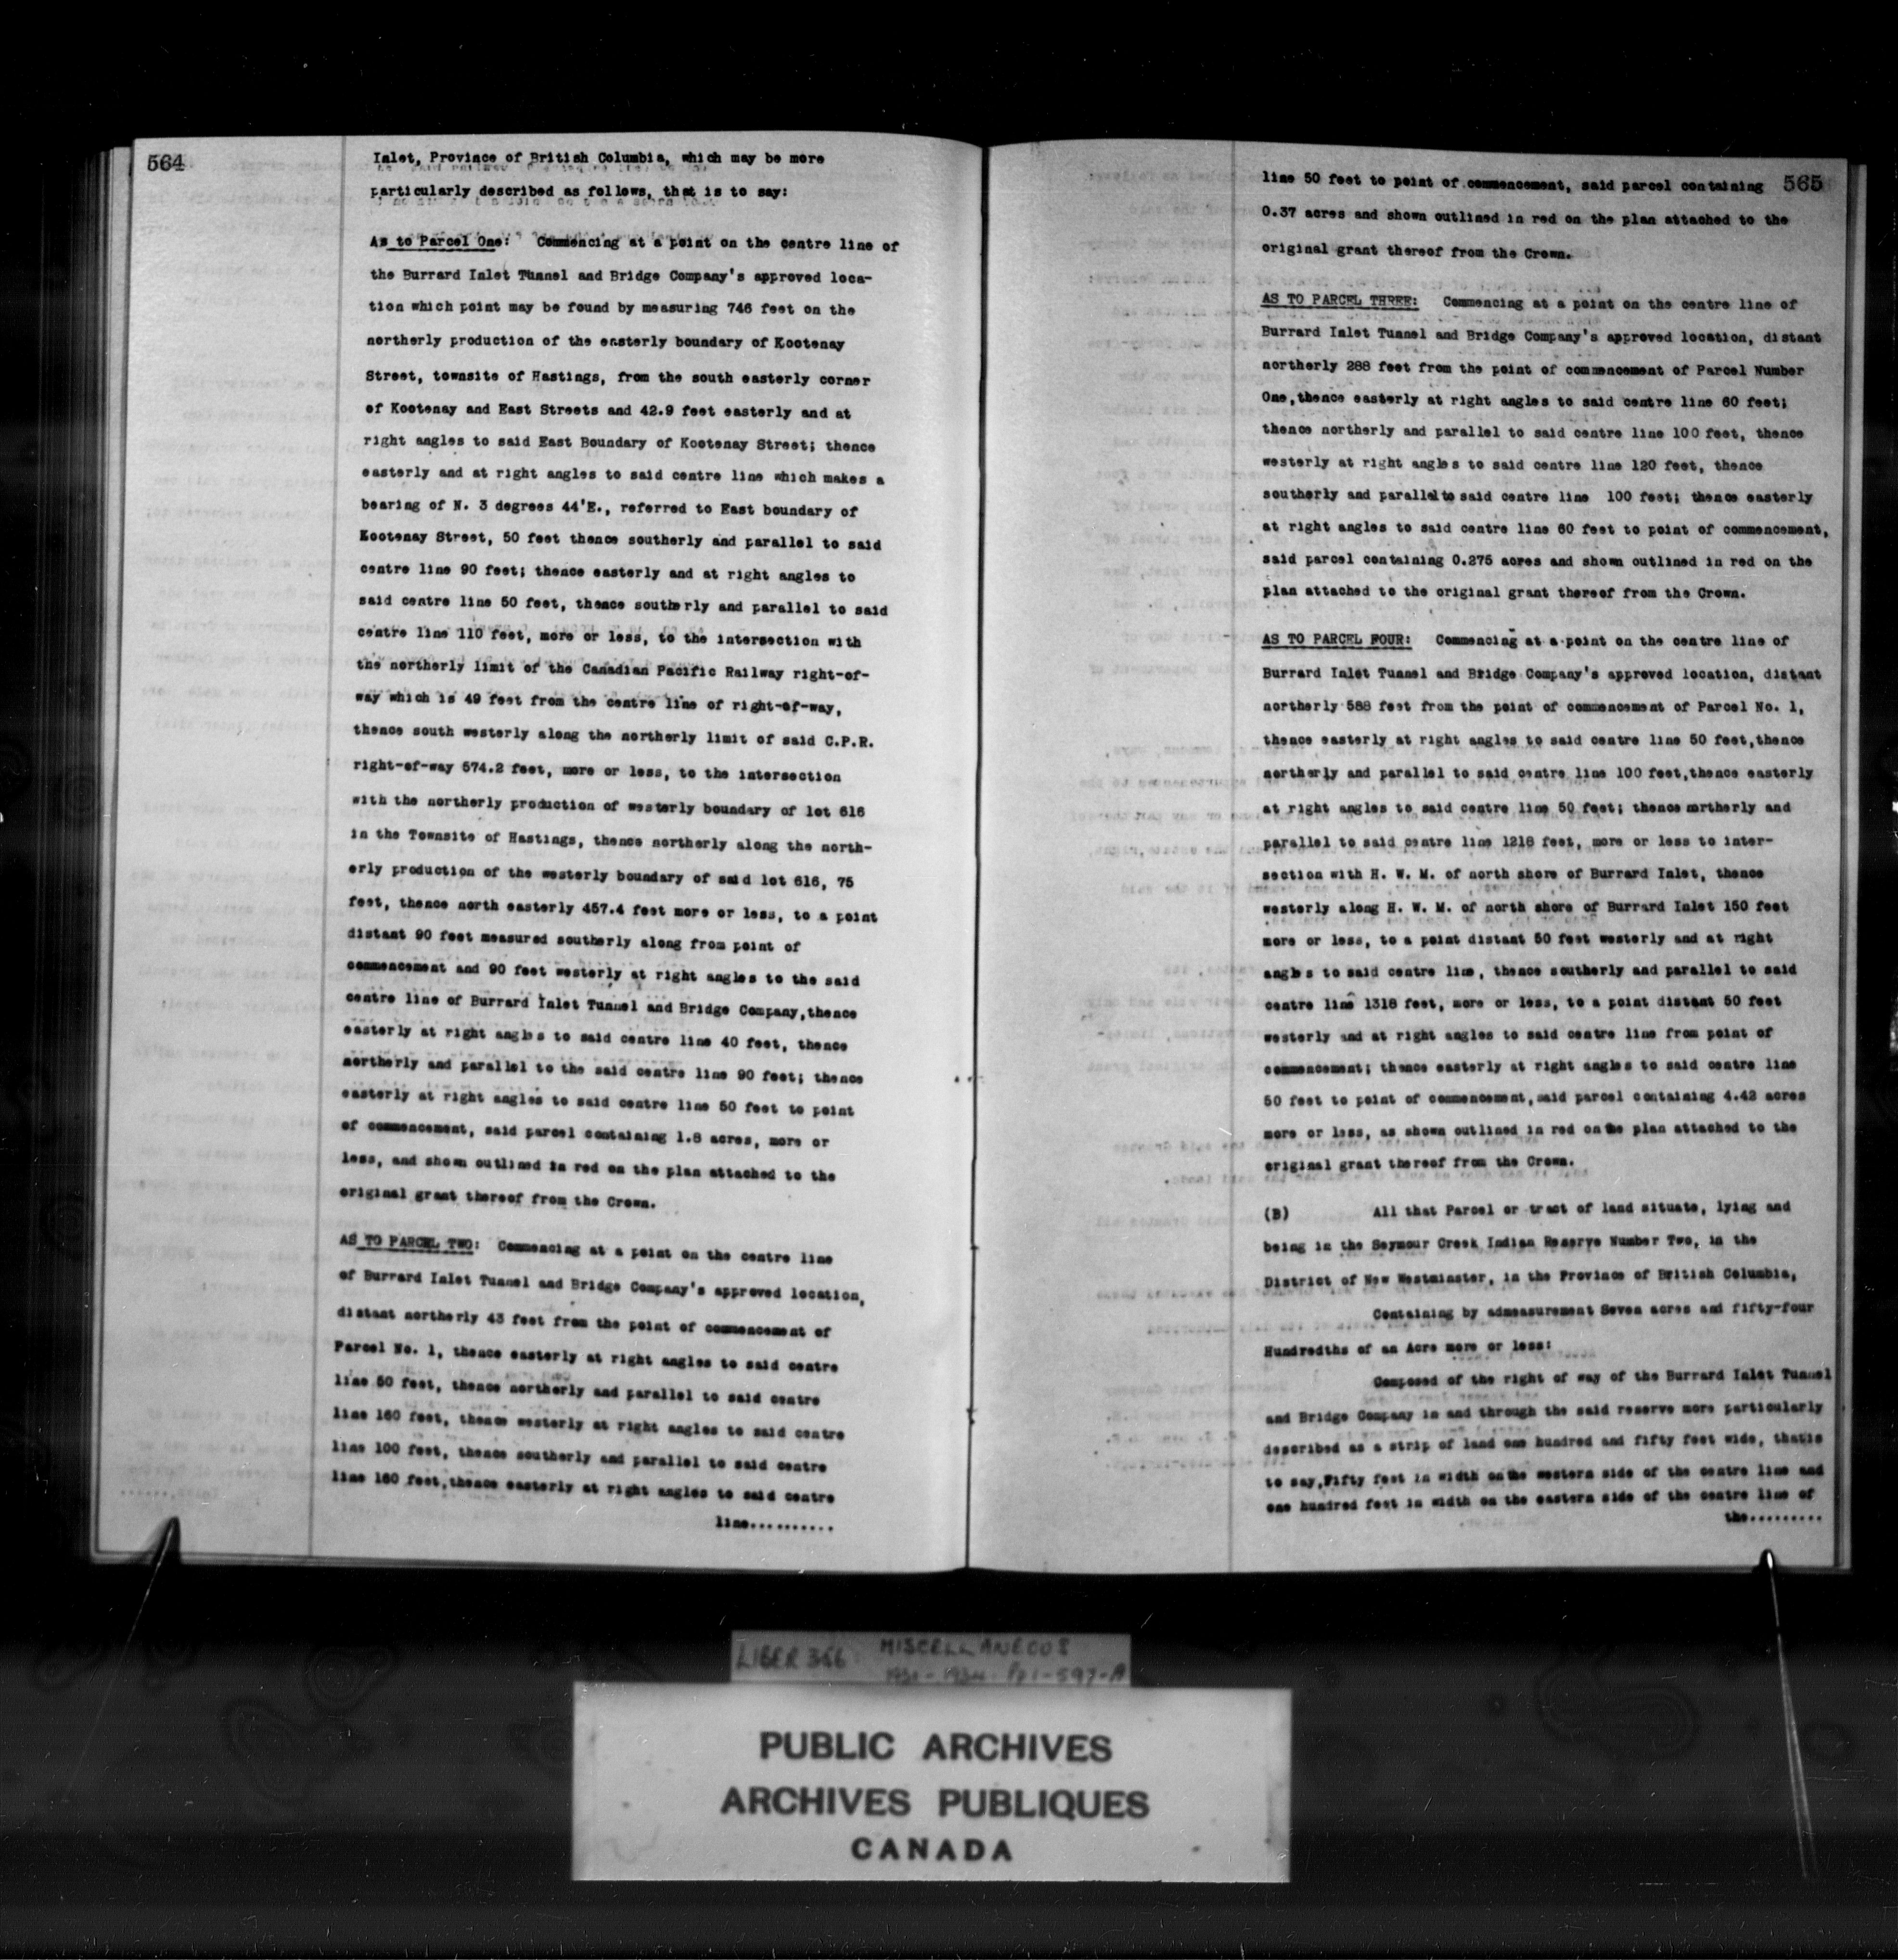 564
Inlet, Province of British Columbia, which may be more
particularly described as follows, that is to say:
As to Parcel One: Commencing at a point on the centre line of
the Burrard Inlet Tunnel and Bridge Company's approved loca-
tion which point may be found by measuring 746 feet on the
northerly production of the easterly boundary of Kootenay
Street, townsite of Hastings, from the south easterly corner
of Kootenay and East Streets and 42.9 feet easterly and at
right angles to said East Boundary of Kootenay Street; thence
easterly and at right angles to said centre line which makes a
bearing of N. 3 degrees 44'E., referred to East boundary of
Kootenay Street, 50 feet thence southerly and parallel to said
centre line 90 feet; thence easterly and at right angles to
said centre line 50 feet, thence southerly and parallel to said
centre line 110 feet, more or less, to the intersection with
the northerly limit of the Canadian Pacific Railway right-of-
way which is 49 feet from the centre line of right-of-way,
thence south westerly along the northerly limit of said C.P.R.
right-of-way 574.2 feet, more or less, to the intersection
with the northerly production of westerly boundary of lot 616
in the Townsite of Hastings, thence northerly along the north-
erly production of the westerly boundary of said lot 616, 75
feet, thence north easterly 457.4 feet more or less, to a point
distant 90 feet measured southerly along from point of
commencement and 90 feet westerly at right angles to the said
centre line of Burrard Inlet Tunnel and Bridge Company,thence
easterly at right angles to said centre line 40 feet, thence
northerly and parallel to the said centre line 90 feet; thence
easterly at right angles to said centre line 50 feet to point
of commencement, said parcel containing 1.8 acres, more or
less, and shown outlined in red on the plan attached to the
original grant thereof from the Crown.
AS TO PARCEL TWO: Commencing at a point on the centre line
of Burrard Inlet Tunnel and Bridge Company's approved location,
distant northerly 43 feet from the point of commencement of
Parcel No. 1, thence easterly at right angles to said centre
line 50 feet, thence northerly and parallel to said centre
line 160 feet, thence westerly at right angles to said centre
line 100 feet, thence southerly and parallel to said centre
line 160 feet,thence easterly at right angles to said centre
line..........
565
line 50 feet to point of commencement, said parcel containing
0.37 acres and shown outlined in red on the plan attached to the
original grant thereof from the Crown.
AS TO PARCEL THREE: Commencing at a point on the centre line of
Burrard Inlet Tunnel and Bridge Company's approved location, distant
northerly 288 feet from the point of commencement of Parcel Number
One,thence easterly at right angles to said centre line 60 feet;
thence northerly and parallel to said centre line 100 feet, thence
westerly at right angles to said centre line 120 feet, thence
southerly and parallel to said centre line 100 feet; thence easterly
at right angles to said centre line 60 feet to point of commencement,
said parcel containing 0.275 acres and shown outlined in red on the
plan attached to the original grant thereof from the Crown.
AS TO PARCEL FOUR: Commencing at a point on the centre line of
Burrard Inlet Tunnel and Bridge Company's approved location, distant
northerly 588 feet from the point of commencement of Parcel No. 1,
thence easterly at right angles to said centre line 50 feet,thence
northerly and parallel to said centre line 100 feet,thence easterly
at right angles to said centre line 50 feet; thence northerly and
parallel to said centre line 1218 feet, more or less to inter-
section with H. W. M. of north shore of Burrard Inlet, thence
westerly along H. W. M. of north shore of Burrard Inlet 150 feet
more or less, to a point distant 50 feet westerly and at right
angles to said centre line, thence southerly and parallel to said
centre line 1318 feet, more or less, to a point distant 50 feet
westerly and at right angles to said centre line from point of
commencement; thence easterly at right angles to said centre line
50 feet to point of commencement,said parcel containing 4.42 acres
more or less, as shown outlined in red on the plan attached to the
original grant thereof from the Crown.
(B) All that Parcel or tract of land situate, lying and
being in the Seymour Creek Indian Reserve Number Two, in the
District of New Westminster, in the Province of British Columbia,
Containing by admeasurement Seven acres and fifty-four
Hundredths of an Acre more or less:
Composed of the right of way of the Burrard Inlet Tunnel
and Bridge Company in and through the said reserve more particularly
described as a strip of land one hundred and fifty feet wide, that is
to say,Fifty feet in width on the western side of the centre line and
one hundred feet in width on the eastern side of the centre line of
the.........
LIBER 366 MISCELLANEOUS
1931-1934
PUBLIC ARCHIVES
ARCHIVES PUBLIQUES
CANADA